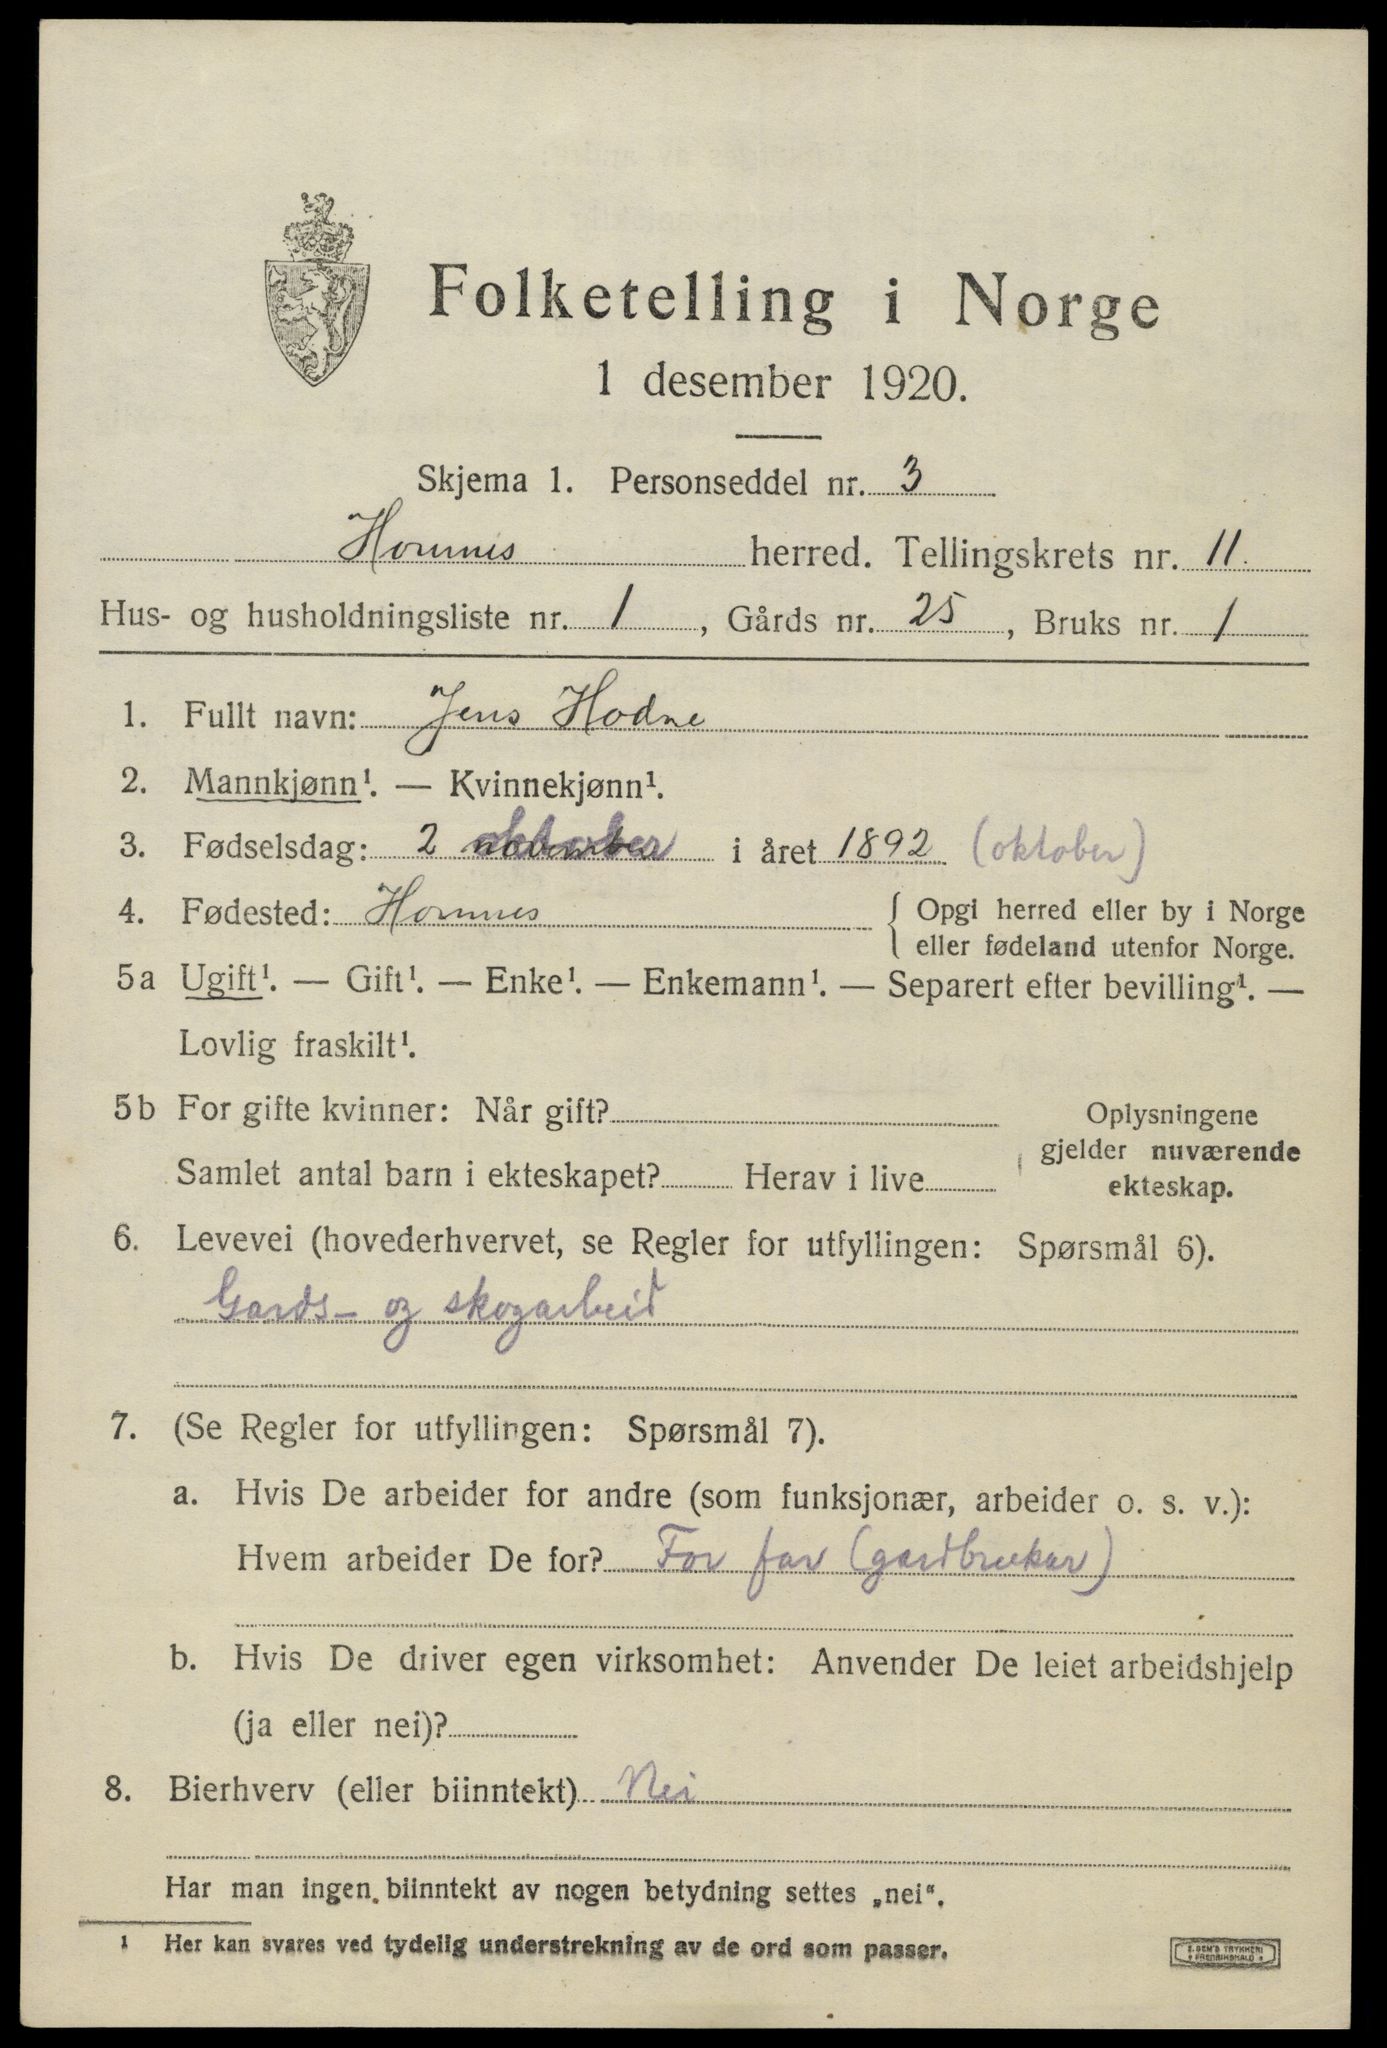 Folketelling i Norge
1 desember 1920.
Skjema 1. Personseddel nr. 3
Hornnes herred. Tellingskrets nr. 11.
Hus- og husholdningsliste nr. 1, Gårds nr. 25, Bruks nr. 1
1. Fullt navn: Jens Hodne
2. Mannkjønn¹. — Kvinnekjønn¹.
3. Fødselsdag: 2 oktober i året 1892 (oktober)
4. Fødested: Hornnes { Opgi herred eller by i Norge
eller fødeland utenfor Norge.
5a Ugift¹. — Gift¹. — Enke¹. — Enkemann¹. — Separert efter bevilling¹. —
Lovlig fraskilt¹.
5b For gifte kvinner: Når gift?
Samlet antal barn i ekteskapet? Herav i live
Oplysningene
gjelder nuværende
ekteskap.
6. Levevei (hovederhvervet, se Regler for utfyllingen: Spørsmål 6).
Gards- og skogarbeid
7. (Se Regler for utfyllingen: Spørsmål 7).
a. Hvis De arbeider for andre (som funksjonær, arbeider o. s. v.):
Hvem arbeider De for? For far (gardbrukar)
b. Hvis De driver egen virksomhet: Anvender De leiet arbeidshjelp
(ja eller nei)?
8. Bierhverv (eller biinntekt) Nei
Har man ingen biinntekt av nogen betydning settes „nei“.
1 Her kan svares ved tydelig understrekning av de ord som passer.